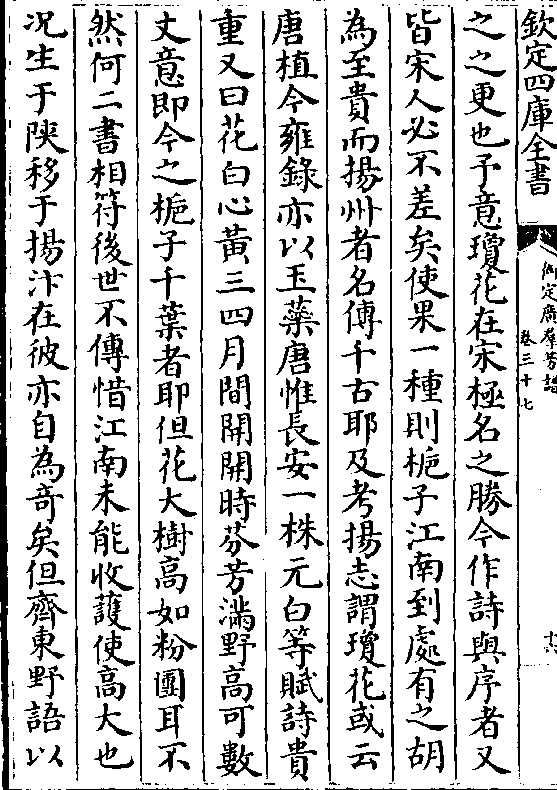 欽定四庫全書
御定廣羣芳譜
卷三十七
十六
之之更也予意瓊花在宋極名之勝今作詩與序者又
皆宋人必不差矣使果一種則梔子江南到處有之胡
為至貴而揚州者名傳千古耶及考揚志謂瓊花或云
唐植今雍錄亦以玉蘂唐惟長安一株元白等賦詩貴
重又曰花白心黃三四月間開開時芬芳滿野高可數
丈意即今之梔子千葉者耶但花大樹高如粉團耳不
然何二書相符後世不傳惜江南未能收護使高大也
况生于陜移于揚汴在彼亦自為竒矣但齊東野語以